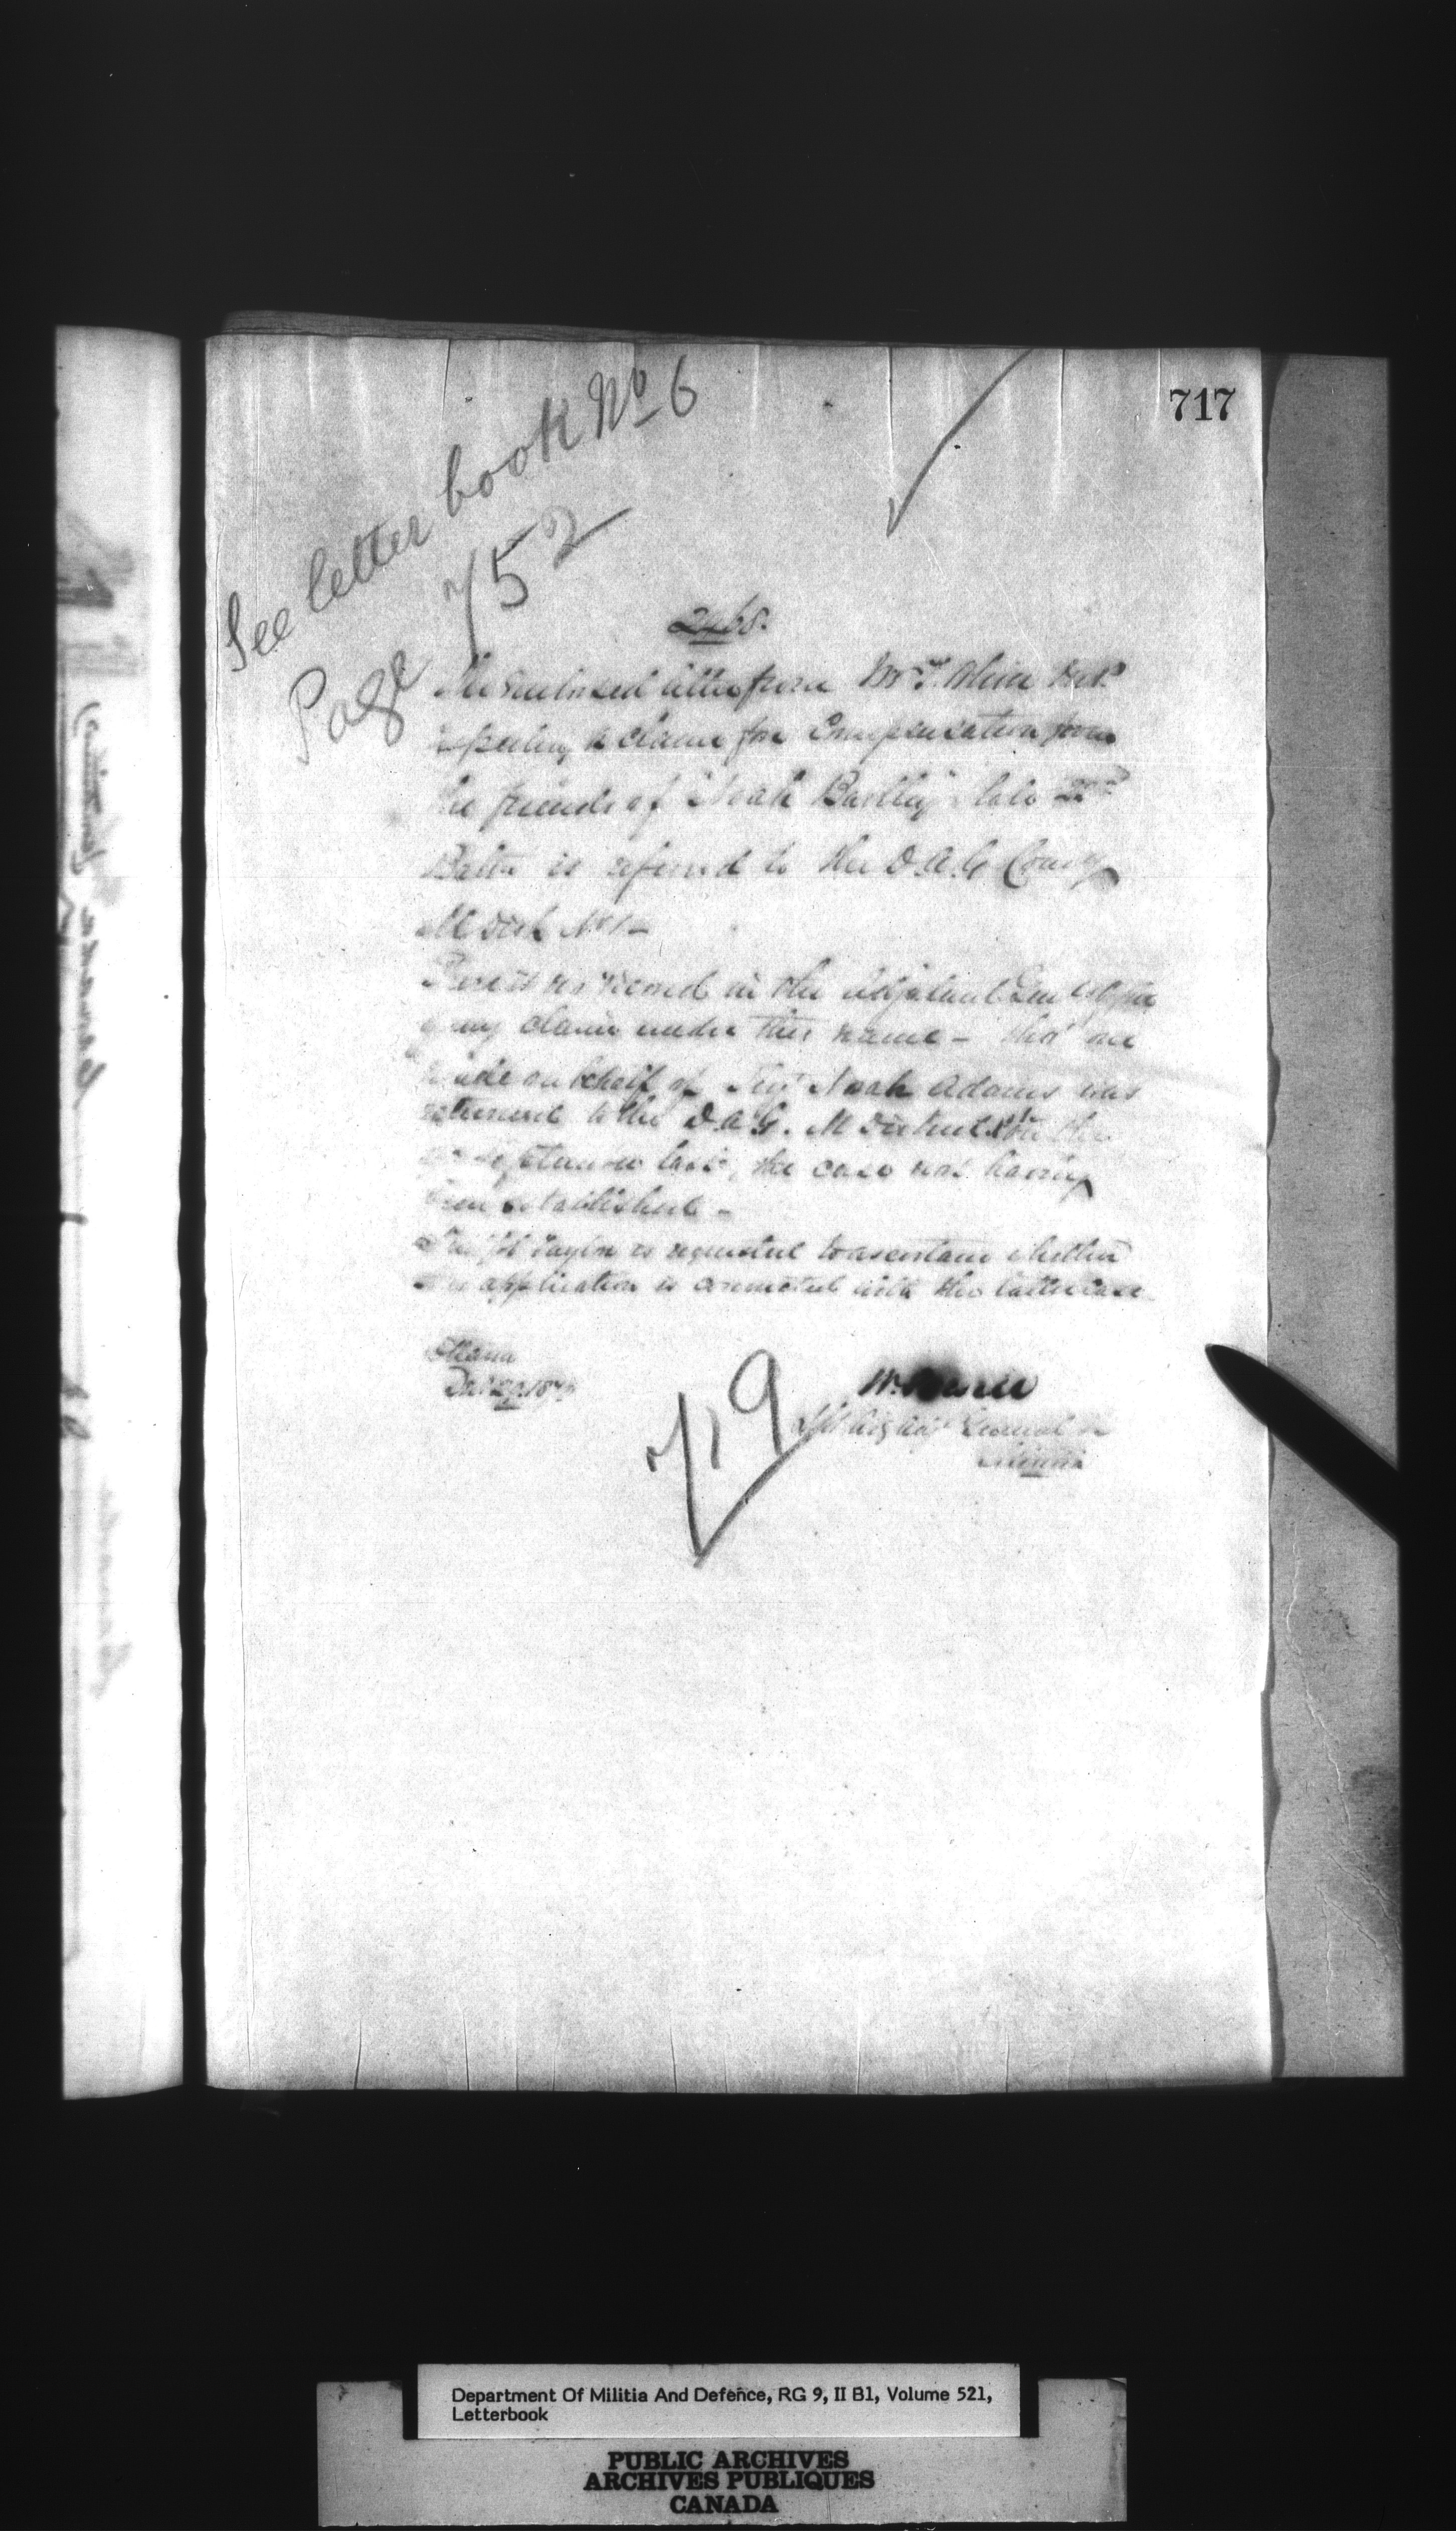 717
See letter book No 6
Page 752
2468.
The enclosed letter from Mr. Oliver M.P.
respecting a claim for Compensation from
the friends of Noah Bartley late 22nd
Battn is referred to the D.A.G Comg
M Dist No 1 -
There is no record in the Adjutant Genl's Office
of any claim under this name - that one
made on behalf of Noah Adams was
returned to the D.A.G. M District on the
September last, the case not having
been established -
Lt Col Taylor is requested to ascertain whether
this application is connected with the latter case
Ottawa
Dec 29
719
W. Powell
Adjt General of
Militia
Department Of Militia And Defence, RG 9, II B1, Volume 521,
Letterbook
PUBLIC ARCHIVES
ARCHIVES PUBLIQUES
CANADA